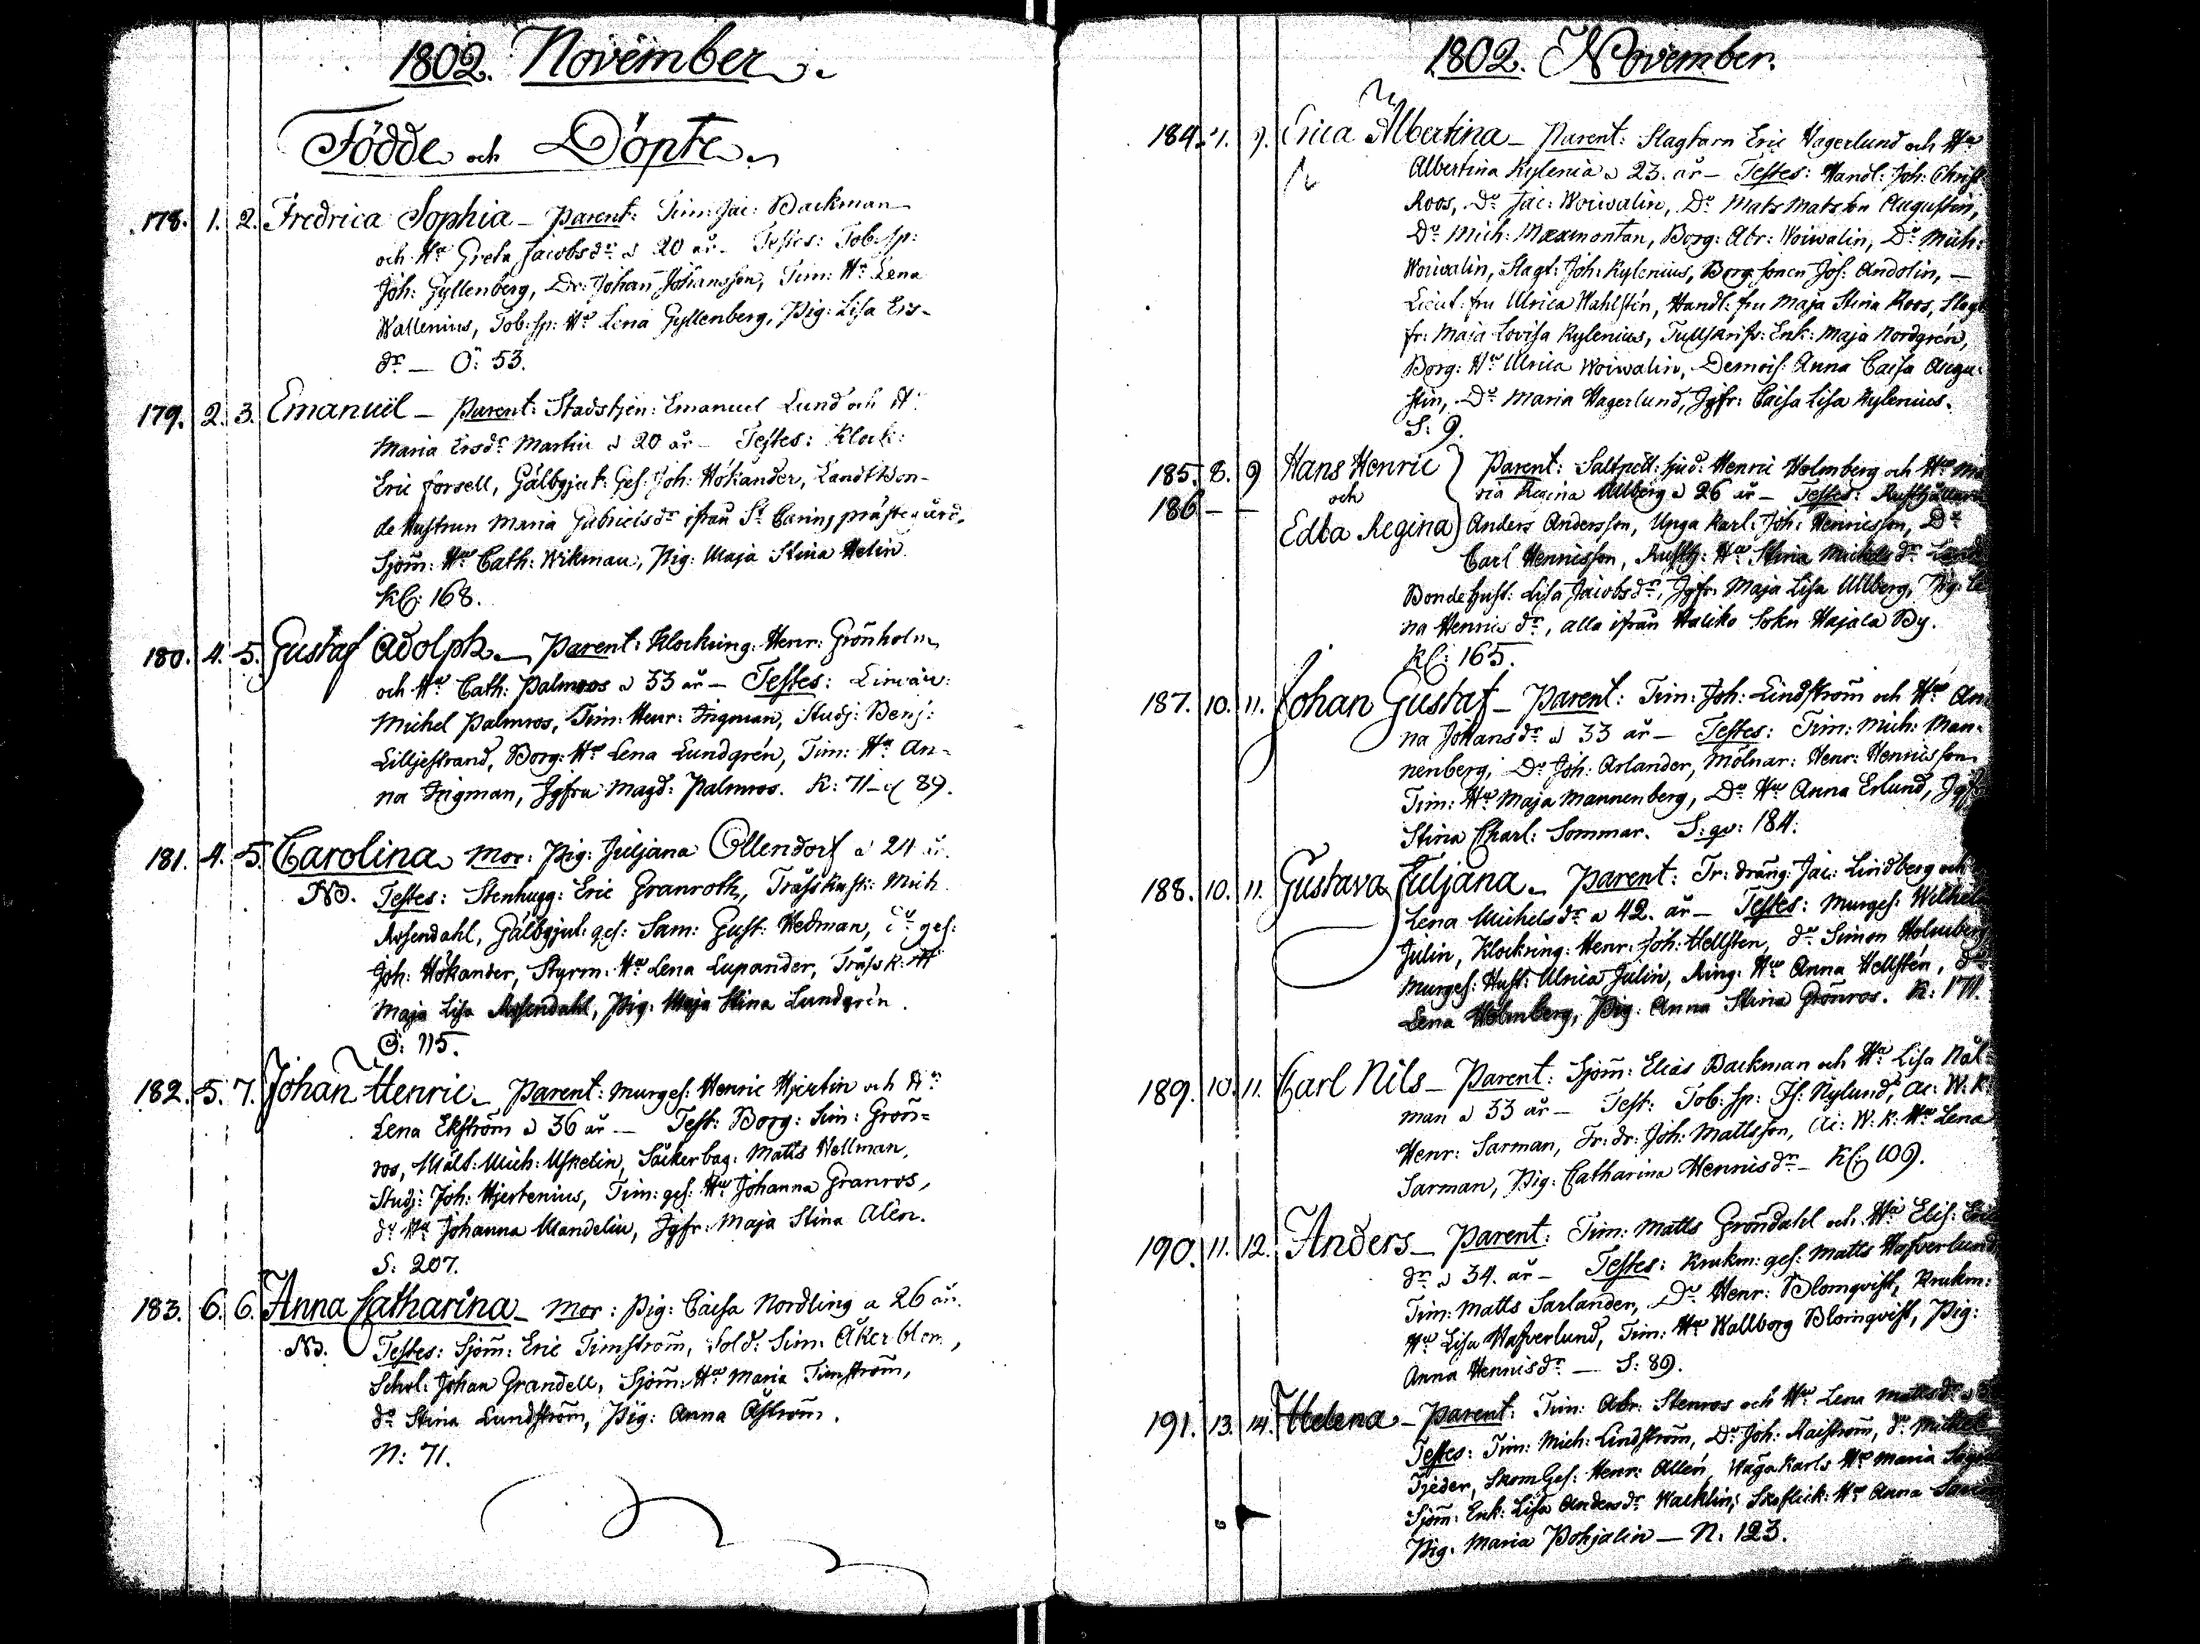 1802. November.
Födde och Döpte
178. 1. 2. Fredrica Sophia - Parent: Tim: Jac: Backman
och Hu Greta Jacobsdr a 20 år. Testes: Tob: sp:
Joh: Gyllenberg, Dr: Johan Johansson, Tim: Hu Lena
Wallenius, Tob: sp: Hu Lena Gyllenberg, Pig: Lisa Ers-
dr — Ö: 53.
179. 2. 3. Emanuel - Parent: Stadstjen: Emanuel Lund och H:
Maria Ersdr Martin a 20 år - Testes: Klock:
Eric Forsell, Gälbgjut: Ges: Joh: Håkander, Landtbon-
de Hustrun Maria Gabrielsdr ifrån St Carins prästegård,
Sjöm: Hu Cath: Wikman, Pig: Maja Stina Helin.
Kl: 168.
180. 4. 5. Gustaf Adolph - Parent: Klockring: Henr: Grönholm
och Hu Cath: Palmroos a 33 år - Testes:
Michel Palmros, Tim: Henr: Ingman, Studj: Benj:
Liljestrand, Borg: Hu Lena Lundgrén, Tim: Hu An-
na Ingman, Jgfru Magd: Palmros. K: 71 - 89.
181. 4. 5. Carolina Mor: Pig: Juljana Ollendorf a 24 år.
NB. Testes: Stenhugg: Eric Granroth, Träfskusk: Mich
Rosendahl, Gälbgjut: ges: Sam: Gust: Hedman, do ges:
Joh: Håkander, Styrm: Hu Lena Lupander, Träfsk: H
Maja Lisa Rosendahl, Pig: Maja Stina Lundgrén.
Ö: 115.
182. 5. 7. Johan Henric - Parent: Murges: Henric Hjertin och Hu
Lena Ekström a 36 år — Test: Borg: Sim: Grön-
ros, Mält: Mich: Uskelin, Såckerbag: Matts Wellman,
Studj: Joh: Hjertenius, Tim: ges: Hu Johanna Granros,
do Hu Johanna Mandelin, Jgfr: Maja Stina Alén.
S: 207.
183. 6. 6. Anna Catharina - Mor: Pig: Caisa Nordling a 26 år.
NB. Testes: Sjöm: Eric Timström, Sold: Sim: Åkerblom,
Schol: Johan Grandell, Sjöm: Hu Maria Timström,
do Stina Lundström, Pig: Anna Åström.
N: 71.
1802. November.
184. 7. 9. Erica Albertina - Parent: Slagtarn Eric Hagerlund och Hu
Albertina Kylenia a 23. år - Testes: Handl: Joh: Christ:
Roos, Do Jac: Woivalin, Do Mats Matsson Augustin,
Do Mich: Maxmontan, Borg: Abr: Woivalin, Do Mich:
Woivalin, Slagt: Joh: Kylenius, Borg: sonen Jos: Andolin, —
Lieut: fru Ulrica Wahlstén, Handl: fru Maja Stina Roos, Slagt
fr: Maja Lovisa Kylenius, Tullskrifv: Enk: Maja Nordgrén,
Borg: Hu Ulrica Woivalin, Demois: Anna Caisa Augu-
stin, Do Maria Hagerlund, Jgfr: Caisa Lisa Kylenius.
S: 9.
185. 8. 9 Hans Henric } Parent: Saltpett: sjud: Henric Holmberg och Hu Ma
och ria Regina Ullberg a 26 år - Testes: Rusthållarn
186 — — Edla Regina } Anders Andersson, Unga Karl: Joh: Henricsson, Do
Carl Henricsson, Rusth: Hu Stina Michelsdr Landt
Bondehust: Lisa Jacobsdr, Jgfr: Maja Lisa Ullberg, Pig: Le
na Henricsdr, alla ifrån Haliko Sokn Hajala By.
Kl: 165.
187. 10. 11. Johan Gustaf - Parent: Tim: Joh: Lindström och Hu An
na Johansdr a 33 år - Testes: Tim: Mich: Man-
nenberg, Do Joh: Arlander, Mölnar: Henr: Henricsson
Tim: Hu Maja Mannenberg, Do Hu Anna Erlund, Jgfr
Stina Charl: Sommar. S: qv: 184.
188. 10. 11. Gustava Juljana - Parent: Tr: dräng: Jac: Lindberg och
Lena Michelsdr a 42. år - Testes: Murges: Wilhelm
Julin, Klockring: Henr: Joh: Hellsten, do Simon Holmberg
Murges: Hust: Ulrica Julin, Ring: Hu Anna Hellstén, do
Lena Holmberg, Pig: Anna Stina Grönros. K: 171.
189. 10. 11. Carl Nils - Parent: Sjöm: Elias Backman och Hu Lisa Nät-
man a 33 år - Test: Tob: sp: Is: Nylund, Ac: W: K:
Henr: Sarman, Tr: dr: Joh: Mattsson, Ac: W: K: Hu Lena
Sarman, Pig: Catharina Henricsdr - Kl: 109.
190. 11. 12. Anders - Parent: Tim: Matts Gröndahl och Hu Elis: Erics
dr a 34. år - Testes: Krukm: ges: Matts Hafverlund
Tim: Matts Sarlander, Do Henr: Blomqvist, Krukm:
Hu Lisa Hafverlund, Tim: Hu Wallborg Blomqvist, Pig:
Anna Henricsdr — S: 89.
191. 13. 14. Helena - Parent: Tim: Abr: Stenros och Hu Lena Mattsdr a
Testes: Tim: Mich: Lindström, Do Joh: Raiström, do Michel
Tjeder, Skom Ges: Henr: Allén, Wåga Karls Hu Maria
Sjöm: Enk: Lisa Andersdr Wacklin, Skoflick: Hu Anna
Pig: Maria Pohjalin — N: 123.